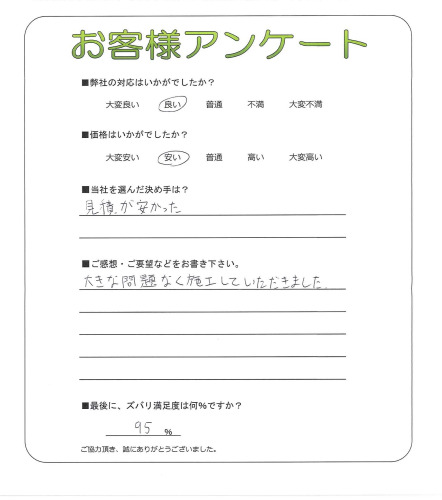 お客様アンケート
■弊社の対応はいかがでしたか？
大変良い 良い 普通 不満 大変不満
■価格はいかがでしたか？
大変安い 安い 普通 高い 大変高い
■当社を選んだ決め手は？
見積が安かった
■ご感想・ご要望などをお書き下さい。
大きな問題なく施工していただきました。
■最後に、ズバリ満足度は何%ですか？
95 %
ご協力頂き、誠にありがとうございました。